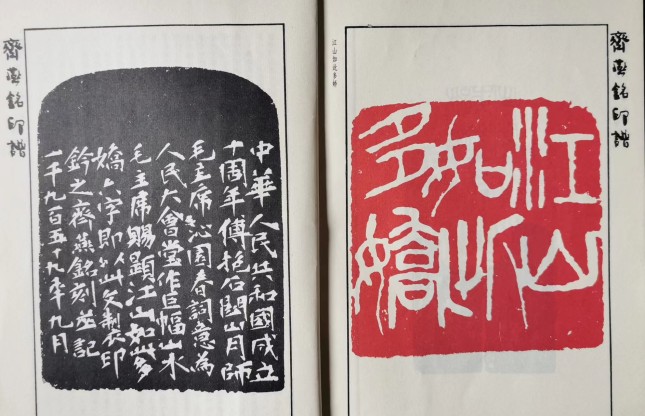 齊燕銘印譜
江山如此多嬌
江山
如此
多嬌
中華人民共和國成立
十周年傅抱石關山月師
毛主席沁園春詞意為
人民大會堂作巨幅山水
毛主席賜題江山如此多
嬌六字即以此文製印
鈐之齊燕銘刻並記
一千九百五十九年九月
齊燕銘印譜